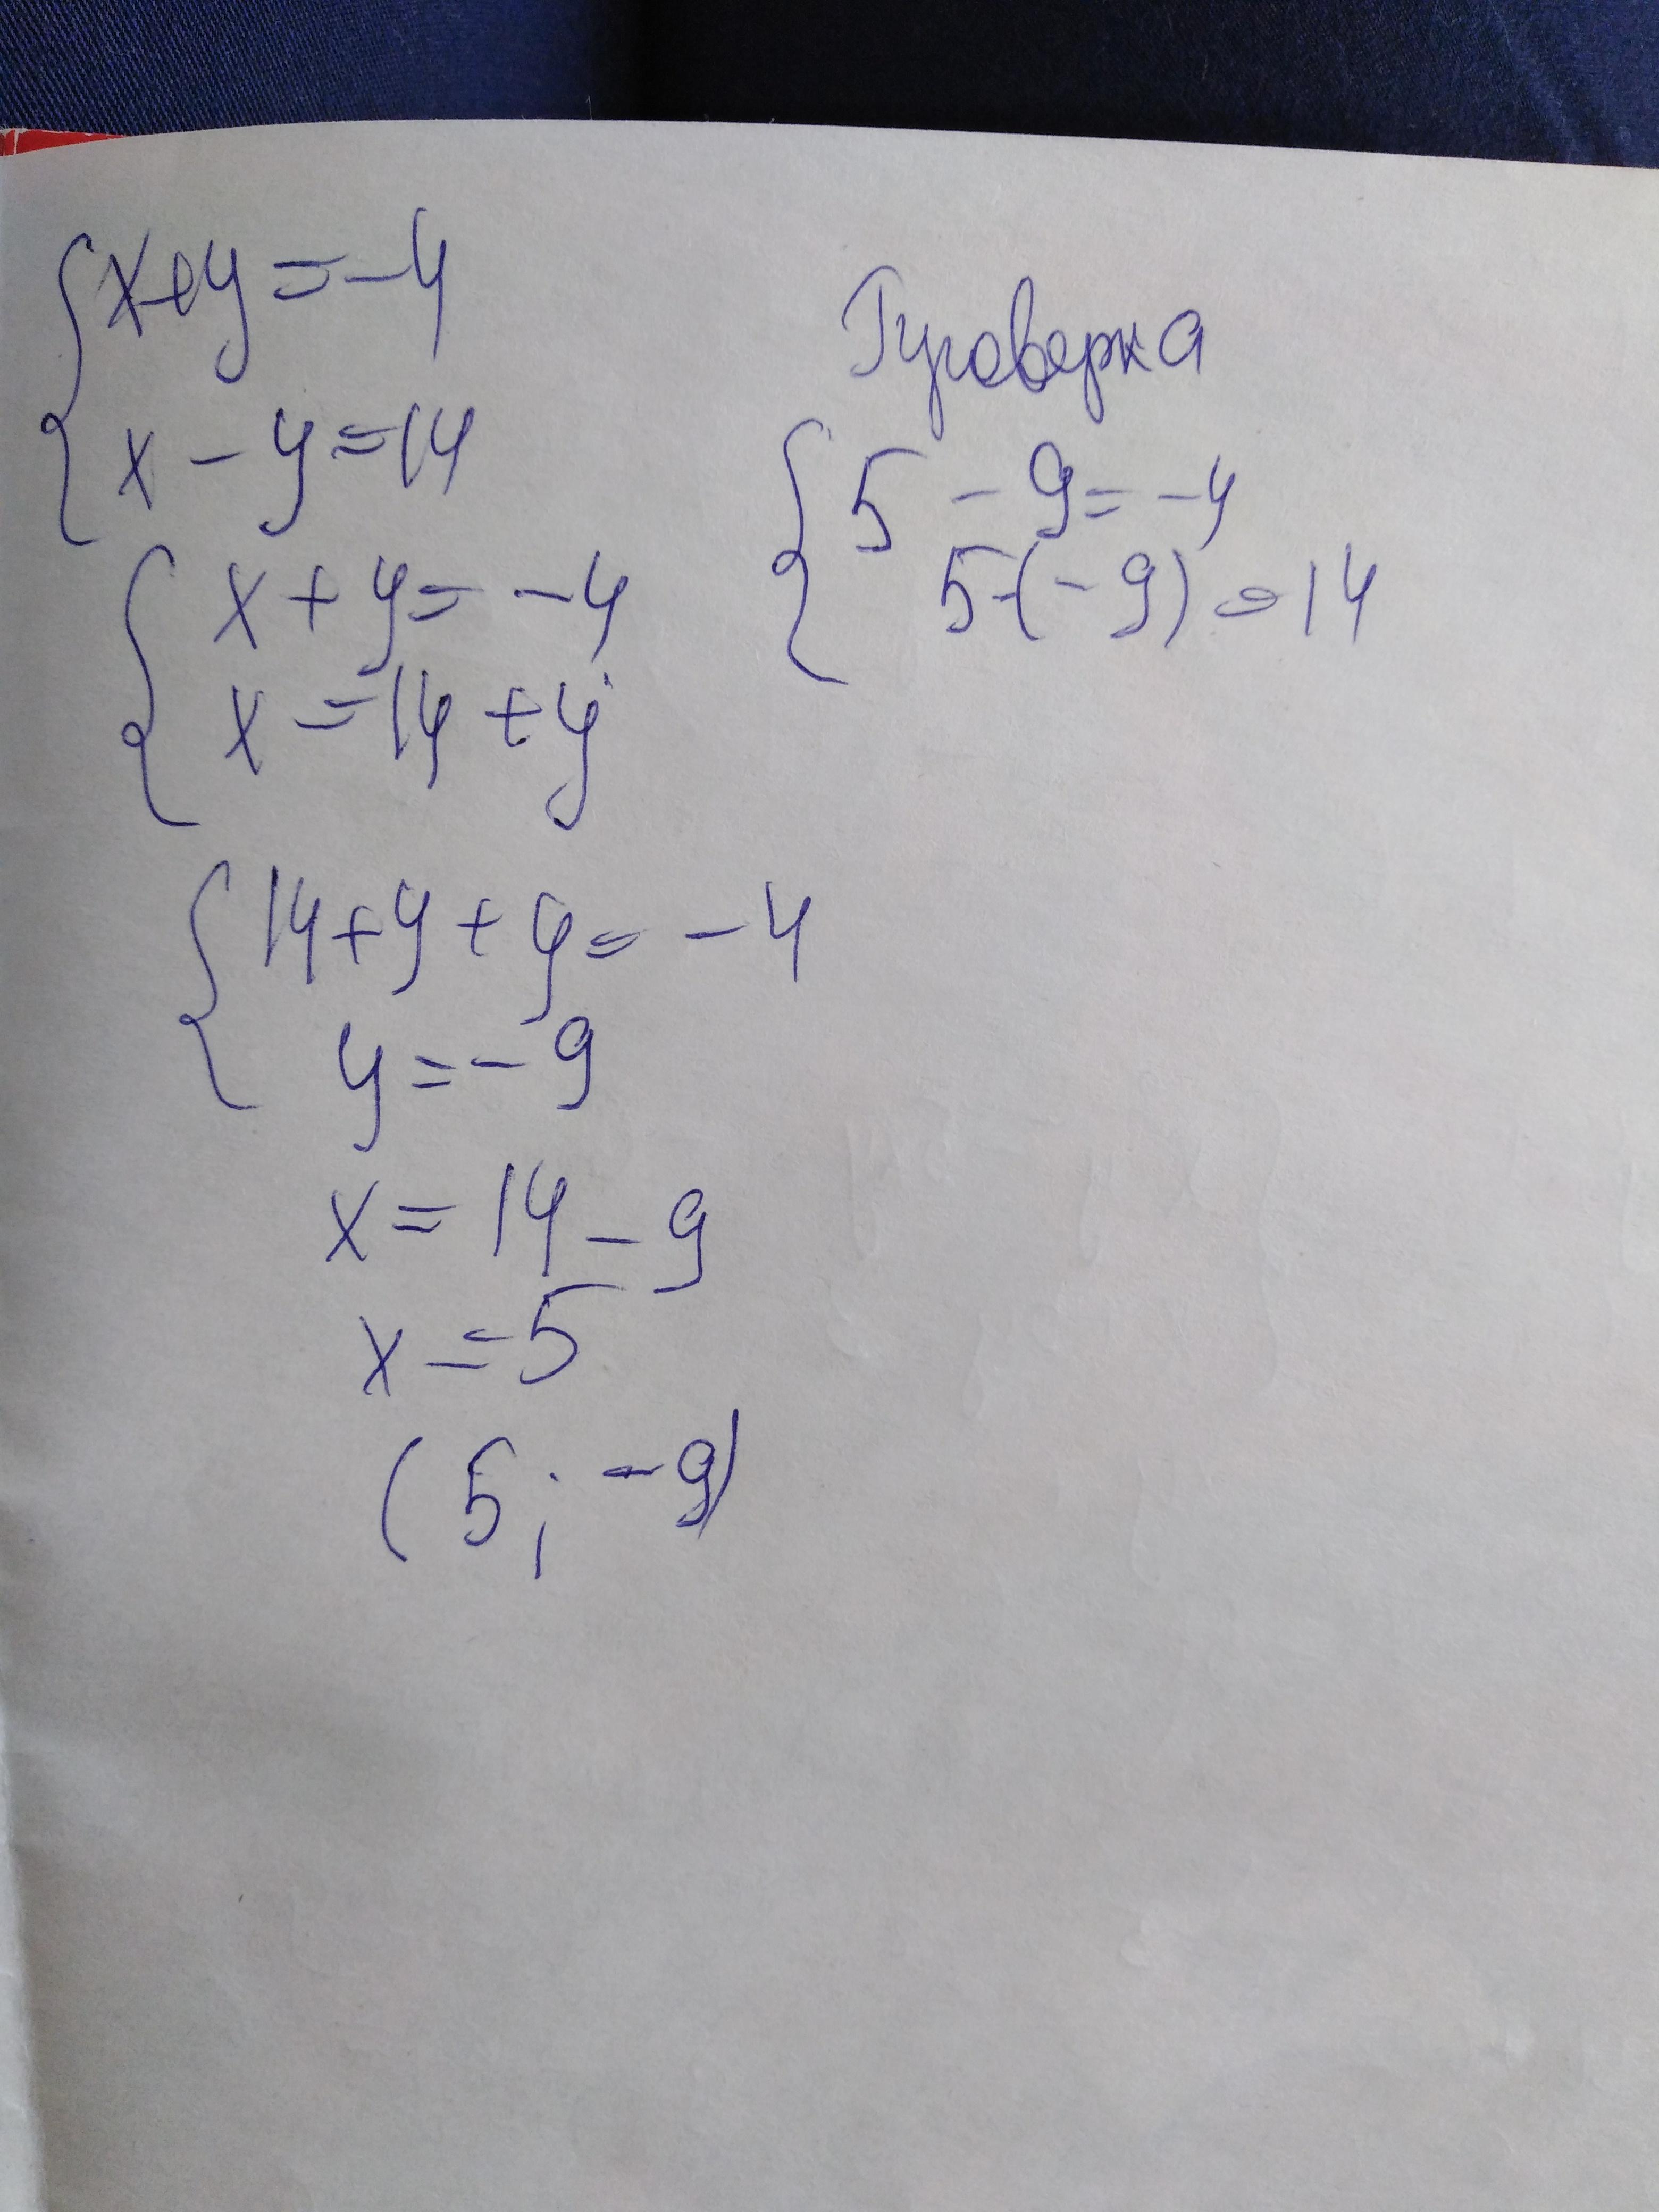 x+y=-4
x-y=14
x+y=-4
x=14+y
14+y+y=-4
y=-9
x=14-9
x=5
(5;-9)
Проверка
5-9=-4
5-(-9)=14